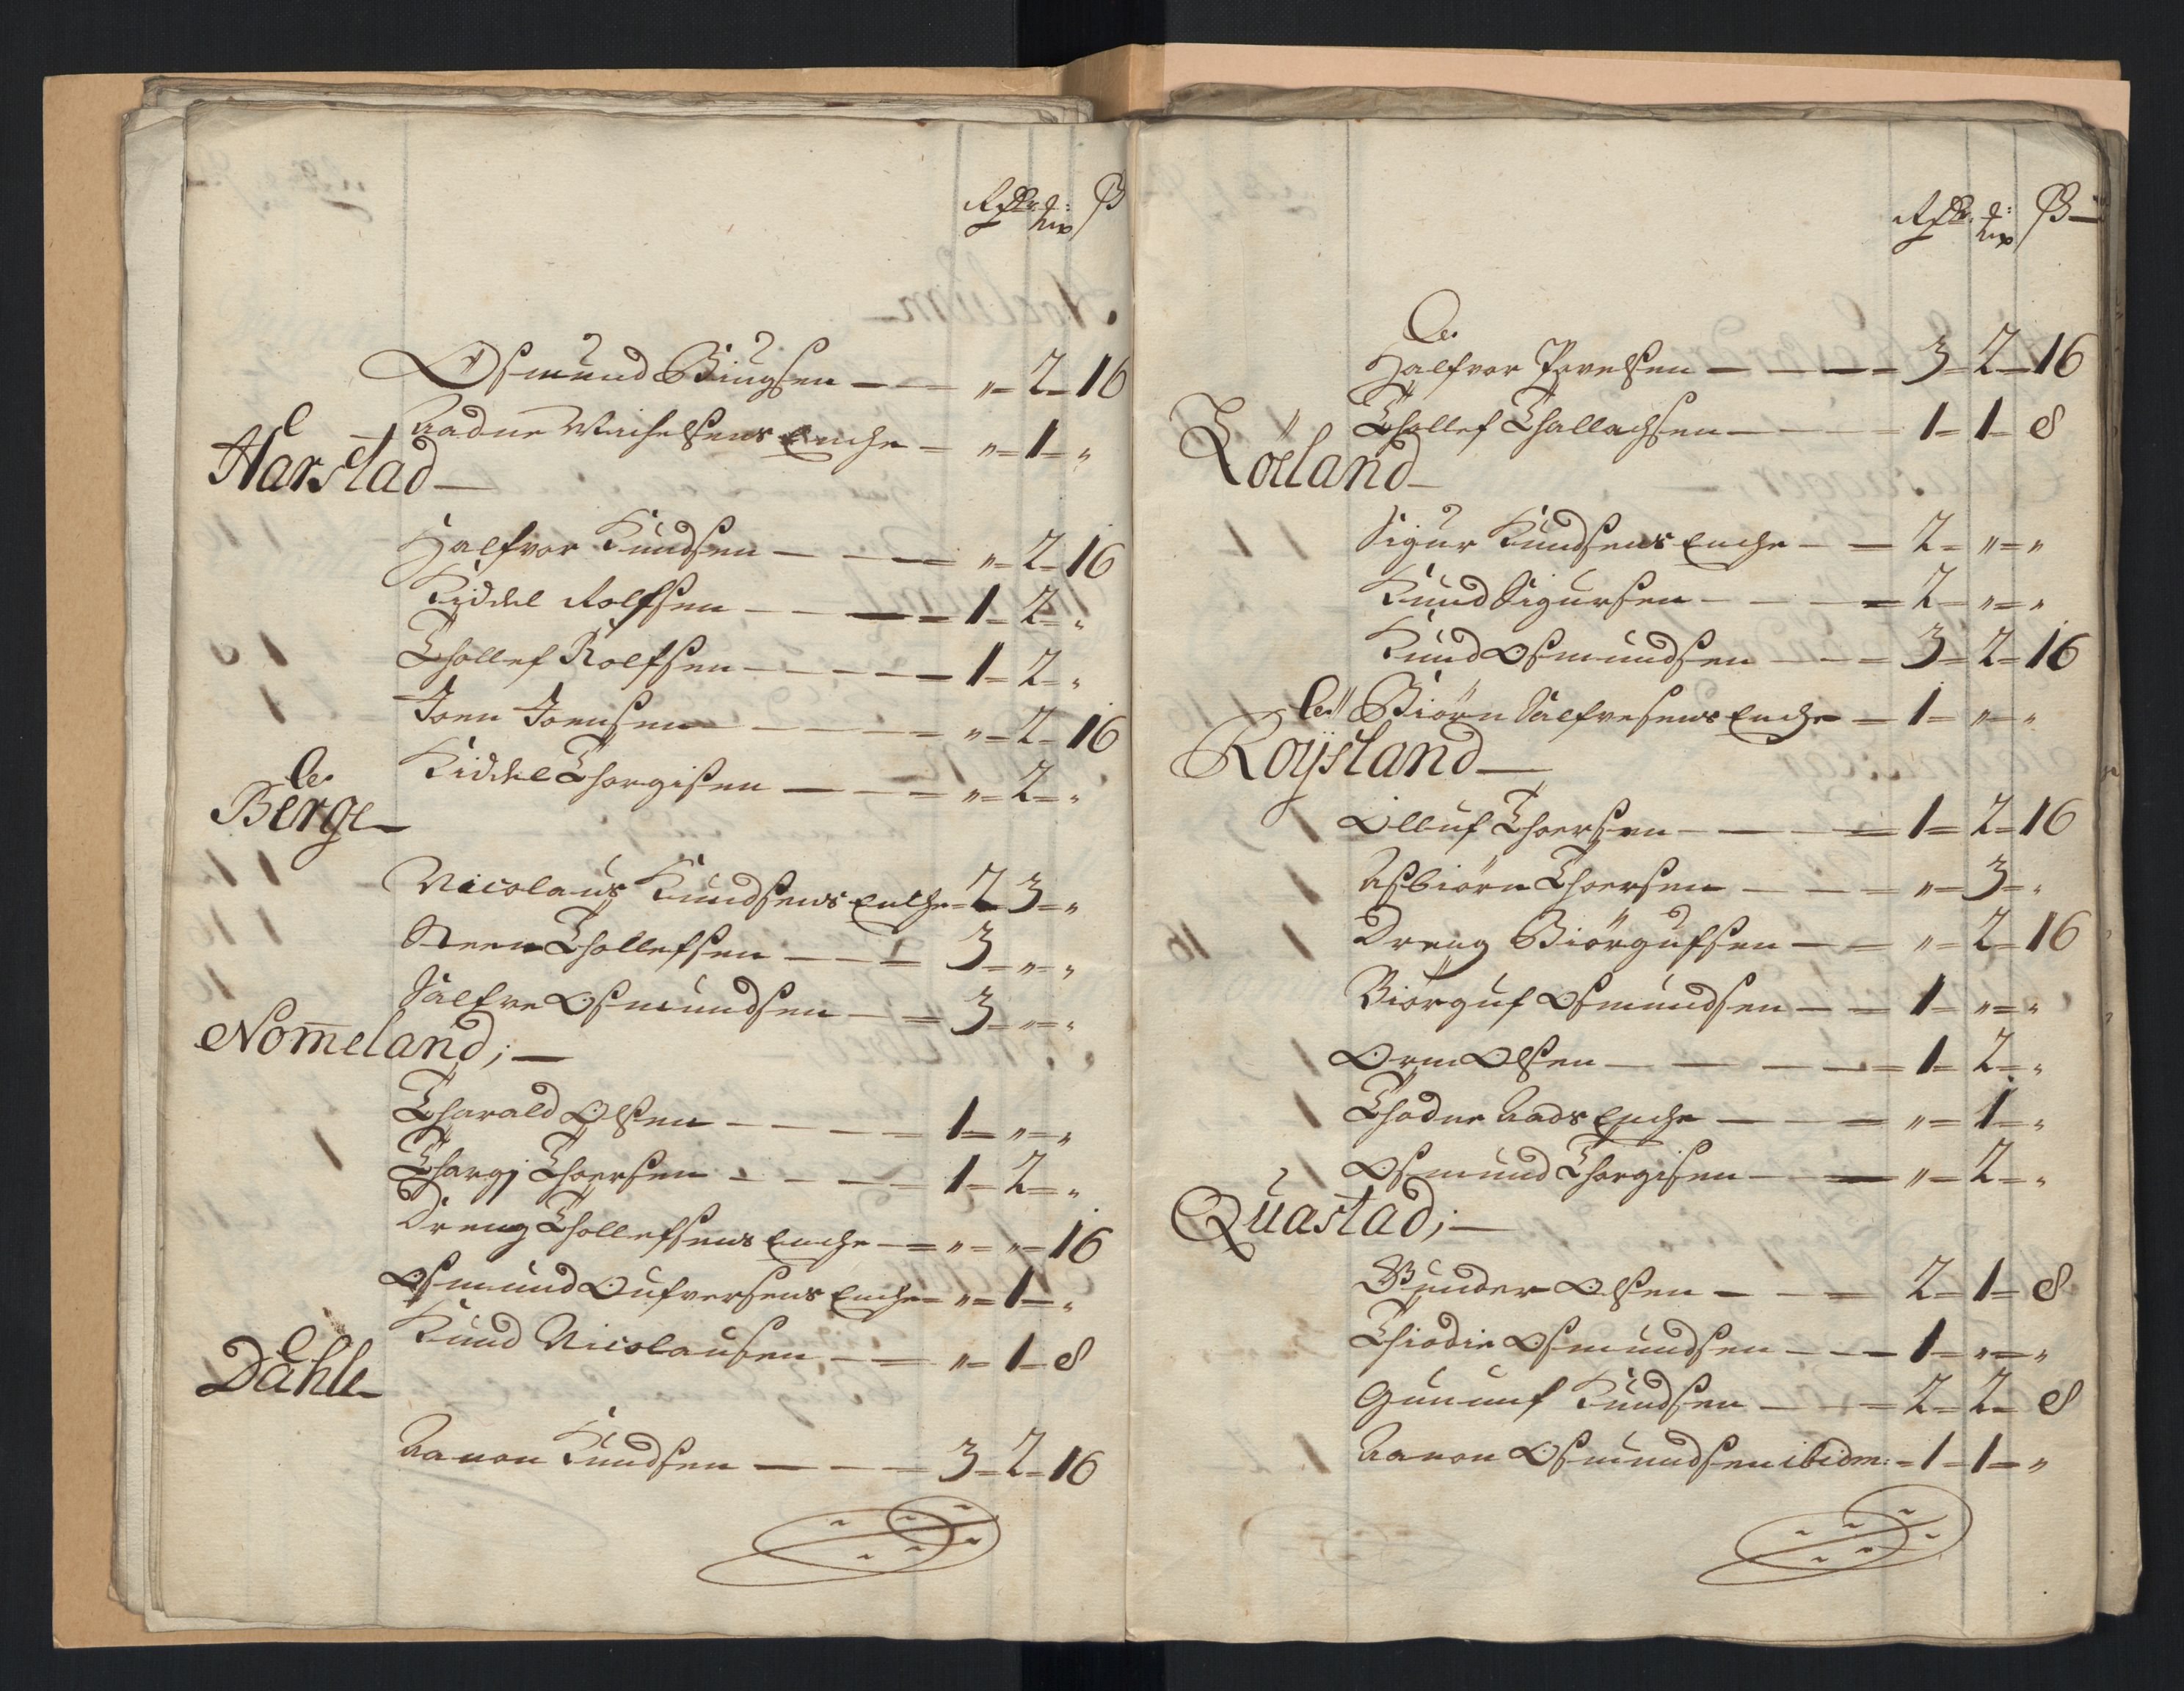 Rdr. mrk ß
Osmund Biugsen — — „ = 2 = 16
Aadne Michelsens Enche — „ = 1 = „
Harstad —
Halfvor Knudsen — — „ = 2 = 16
Kiddel Rolfsen — — 1 = 2 = „
Thollef Rolfsen — — 1 = 2 = „
Joen Joensen — — „ = 2 = 16
Kiddel Thorgisen — — „ = 2 = „
Berge —
Nicolaus Knudsens Enche = 2 3 = „
Steen Thollefsen — — 3 = „ = „
Salfve Osmundsen — — 3 = „ = „
Nom̄eland; —
Tharald Olsen — — 1 = „ = „
Thargj Thoersen — — 1 = 2 = „
Dreng Thollefsens Enche — „ = „ = 16
Osmund Oufversens Enche = „ = 1 = „
Knud Nicolausen — — „ = 1 = 8
Dahle —
Aanon Knudsen — — 3 = 2 = 16
Rdr. mrk ß
Halfvor Povelsen — — 3 = 2 = 16
Thollef Thallachsen — — 1 = 1 = 8
Löeland —
Sigur Knudsens Enche — 2 = „ = „
Knud Sigursen — — 2 = „ = „
Knud Osmundsen — — 3 = 2 = 16
Biörn Salfvesens Enche — 1 = „ = „
Röysland —
Olluf Thoersen — — 1 = 2 = 16
Asbiörn Thoersen — — „ = 3 = „
Dreng Biörgufsen — — „ = 2 = 16
Biörguf Osmundsen — — 1 = „ = „
Orm Olsen — — 1 = 2 = „
Thodne Aads Enche — — „ = 1 = „
Osmund Thorgisen — — „ = 2 = „
Quastad; —
Gunder Olsen — — 2 = 1 = 8
Thiodie Osmundsen — — 1 = „ = „
Gununf Knudsen — — 2 = 2 = 8
Aanon Osmundsen ibidm: = 1 = 1 = „